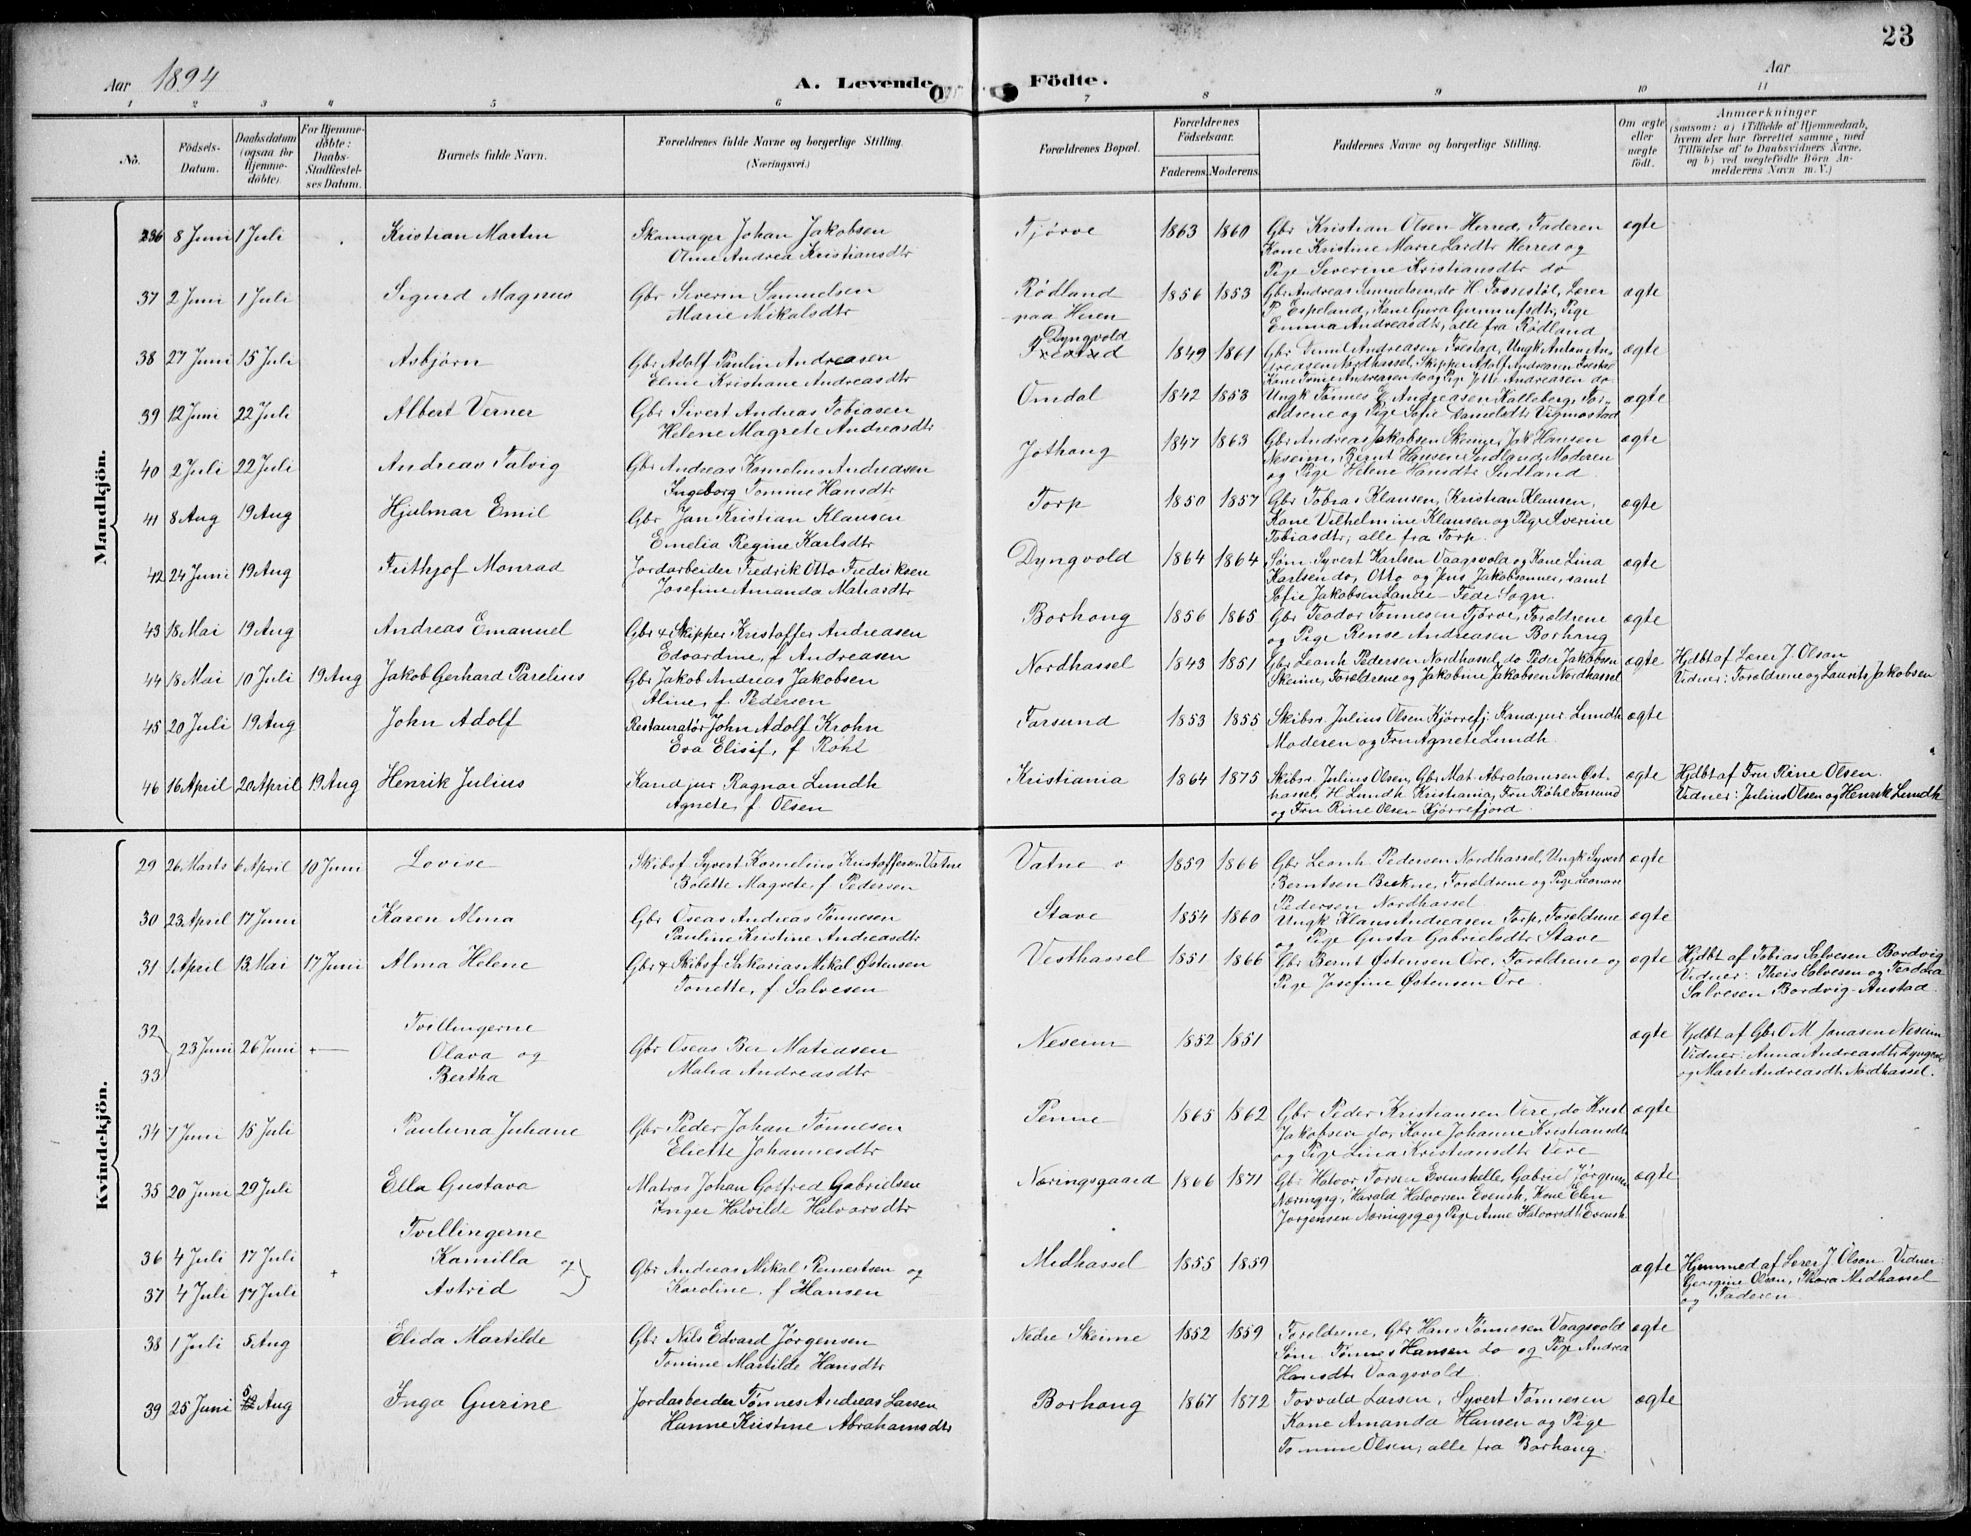 23
Aar 1894
A. Levende Födte.
Aar
1 2 3 4 5 6 7 8 9 10 11
No.
Födsels-Datum.
Daabsdatum (ogsaa for Hjemme-döbte).
For Hjemme-döbte: Daabs-Stadfæstel-ses Datum.
Barnets fulde Navn.
Forældrenes fulde Navne og borgerlige Stilling. (Næringsvei.)
Forældrenes Bopæl.
Forældrenes Födselsaar.
Faderens. Moderens.
Faddernes Navne og borgerlige Stilling.
Om ægte eller uægte födt.
Anmærkninger
(saasom: a) i Tilfælde af Hjemmedaab, hvem der har forrettet samme, med Tilföielse af to Daabsvidners Navne, og b) ved uægtefödte Börn An-melderens Navn m. V.)
Mandkjön.
236 8 Juni 1 Juli Kristian Martin Skomager Johan Jakobsen Tjørve 1863 1860 Gbr Kristian Olsen Herred, Faderen ægte
Oline Andrea Kristiansdtr Kone Kristine Marie Larsdtr Herred og
Pige Severine Kristiansdtr do
37 2 Juni 1 Juli Sigurd Magnus Gbr Severin Samuelsen Rødland 1856 1853 Gbr Andreas Samuelsen, do H. Fossestøl, Lærer ægte
Marie Mikalsdtr paa Heien P. Espeland, Kone Gura Gunnufsdtr, Pige
Emma Andreasdtr, alle fra Rødland
38 27 Juni 15 Juli Asbjørn Gbr Adolf Paulin Andreasen Dyngvold 1849 1861 ægte
Eline Kristiane Andreasdtr
39 12 Juni 22 Juli Albert Verner Gbr Sivert Andreas Tobiasen Omdal 1842 1853 Ungk Tønnes E. Andreasen Kalleberg, For- ægte
Helene Magrete Andreasdtr ældrene og Pige Sofie Danielsdtr Vigmostad
40 2 Juli 22 Juli Andreas Talvig Gbr Andreas Kornelius Andreasen Jothaug 1847 1863 Gbr Andreas Jakobsen Skeime, Jak Hansen ægte
Ingeborg Tomine Hansdtr Neseim, Bernt Hansen Sudland, Moderen
og Pige Helene Hansdtr Sudland
41 8 Aug 19 Aug Hjalmar Emil Gbr Jan Kristian Klausen Torp 1850 1857 Gbr Tobias Klausen, Kristian Klausen, ægte
Emelia Regine Karlsdtr Kone Vilhelmine Klausen og Pige Severine
Tobiasdtr, alle fra Torp
42 24 Juni 19 Aug Frithjof Monrad Jordarbeider Fredrik Otto Fredriksen Dyngvold 1864 1864 Søm. Syvert Karlsen Vaagsvold og Kone Lina ægte
Josefine Amanda Matiasdtr Karlsen do, Otto og Jens Jakobsønner, samt
Sofie Jakobsen Lande – Fede Sogn
43 18 Mai 19 Aug Andreas Emanuel Gbr & Skipper Kristoffer Andreasen Borhaug 1856 1865 Gbr Teodor Tønnesen Tjørve, Forældrene ægte
Edvardine, f Andreasen og Pige Rense Andreasen Borhaug
44 18 Mai 10 Juli 19 Aug Jakob Gerhard Parelius Gbr Jakob Andreas Jakobsen Nordhassel 1843 1851 Gbr Leonh Pedersen Nordhassel, do Peder Jakobsen ægte Hjdbt af Lærer J. Olson
Aline, f. Pedersen Skeime, Forældrene og Jakobine Jakobsen Nordhassel Vidner: Forældrene og Laurits Jakobsen
45 20 Juli 19 Aug John Adolf Restauratør John Adolf Krohn Farsund 1853 1855 Skibsr. Julius Olsen Kjørrefj. Kand. jur. Lundh ægte
Eva Elisif, f Røhl Moderen og Fru Agnete Lundh
46 16 April 20 April 19 Aug Henrik Julius Kand jur Ragnar Lundh Kristiania 1864 1875 Skibsr. Julius Olsen, Gbr Mat. Abrahamsen Øst- ægte Hjdbt af Fru Rine Olsen.
Agnete, f. Olsen hassel, H. Lundh Kristiania, Fru Røhl Farsund Vidner: Julius Olsen og Henrik Lundh
og Fru Rine Olsen Kjørrefjord
Kvindekjön.
29 26 Marts 6 April 10 Juni Lovise Skibsf Syvert Kornelius Kristoffersen Vatne Vatne 1859 1866 Gbr Leonh Pedersen Nordhassel, Ungk Syvert ægte
Bolette Magrete, f Pedersen Berntsen Birkne, Forældrene og Pige Leonore
Pedersen Nordhassel
30 23 April 17 Juni Karen Alma Gbr Oseas Andreas Tønnesen Stave 1854 1860 Ungk Klaus Andreasen Torp, Forældrene ægte
Pauline Kristine Andreasdtr og Pige Gusta Gabrielsdtr Stave
31 1 April 13 Mai 17 Juni Alma Helene Gbr & Skibsf Sakarias Mikal Østensen Vesthassel 1851 1866 Gbr Bernt Østensen Ore, Forældrene og ægte Hjdbt af Tobias Salvesen Bordvig
Tonette, f Salvesen Pige Josefine Østensen Ore Vidner: Theis Salvesen og Teodora
Salvesen Bordvig-Austad
32 Tvillingerne
23 Juni 26 Juni + Olava og Gbr Oseas Ber Matiasen Neseim 1852 1851 ægte Hjdbt af Gbr O M Jonasen Neseim
33 Bertha Malia Andreasdtr Vidner: Anna Andreasdtr
og Marte Andreasdtr Nordhassel.
34 7 Juni 15 Juli Paulina Juliane Gbr Peder Johan Tønnesen Penne 1865 1862 Gbr Peder Kristiansen Vere, do Krist ægte
Eliette Johannesdtr Jakobsen do, Kone Johanne Kristiansdtr
og Pige Lina Kristiansdtr Vere
35 20 Juni 29 Juli Ella Gustava Matros Johan Gotfred Gabrielsen Næringsgaard 1866 1871 Gbr Halvor Torsen Evenskelle, Gabriel Jørgensen ægte
Inger Halvilde Halvorsdtr Næringsg, Harald Halvorsen Evensk, Kone Elen
Jørgensen Næringsg og Pige Anne Halvorsdtr Evensk
Tvillingerne
36 4 Juli 17 Juli Kamilla og Gbr Andreas Mikal Reinertsen og Midhassel 1855 1859 ægte Hjemmed af Lærer J. Olson Vidner:
37 4 Juli 17 Juli + Astrid Karoline f Hansen Georgine Olson, Thora Midhassel
og Faderen
38 1 Juli 5 Aug Elida Martilde Gbr Nils Edvard Jørgensen Nedre Skeime 1852 1859 Forældrene, Gbr Hans Tønnesen Vaagsvold ægte
Tomine Martilde Hansdtr Søm. Tønnes Hansen do og Pige Andrea
Hansdtr Vaagsvold
39 25 Juni 5 Aug Inga Gurine Jordarbeider Tønnes Andreas Larsen Borhaug 1867 1872 Torvald Larsen, Syvert Tønnesen ægte
Hanne Kristine Abrahamsdtr Kone Amanda Hansen og Pige
Tomine Olsen, alle fra Borhaug.